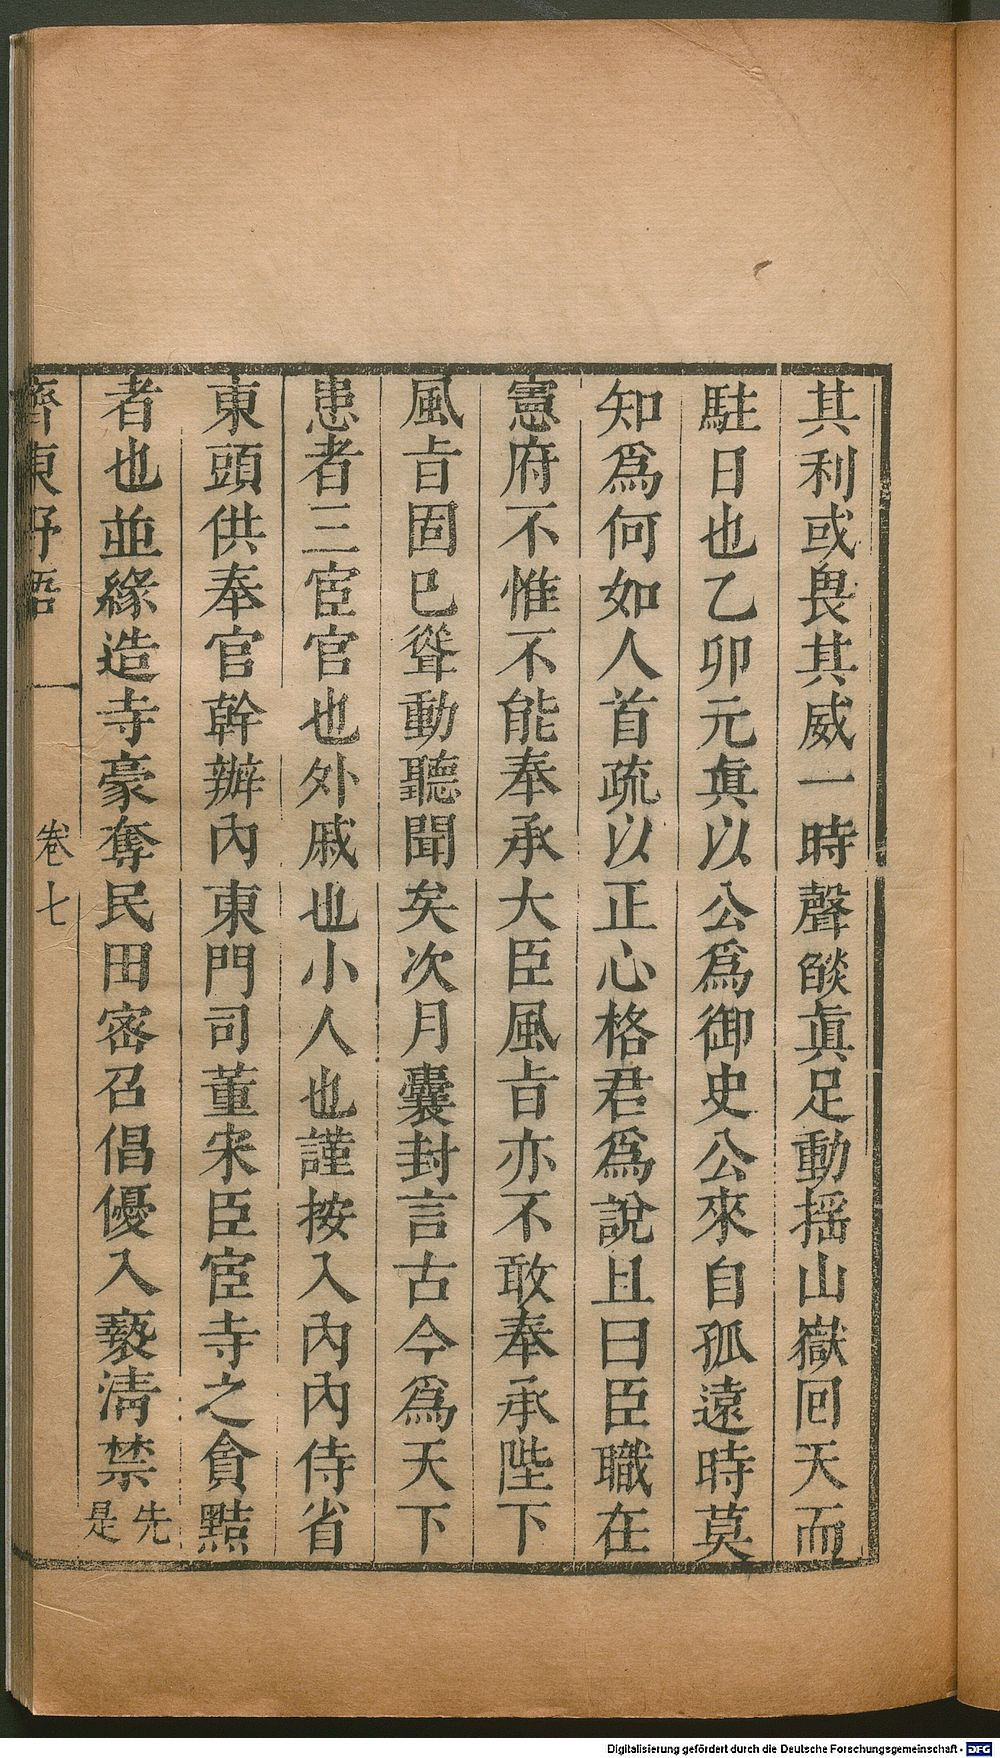 其利或畏其威一時聲燄眞足動揺山嶽回天而
駐日也乙卯元眞以公爲御史公來自孤遠時莫
知爲何如人首疏以正心格君爲說且曰臣職在
憲府不惟不能奉承大臣風旨亦不敢奉承陛下
風旨固巳聳動聽聞矣次月囊封言古今爲天下
患者三宦官也外戚也小人也謹按入內內侍省
東頭供奉官幹辦內東門司董宋臣宦寺之貪黠
者也並緣造寺豪奪民田密召倡優入褻清禁先是
齊東野語 卷七
Digitalisierung gefördert durch die Deutsche Forschungsgemeinschaft - DFG